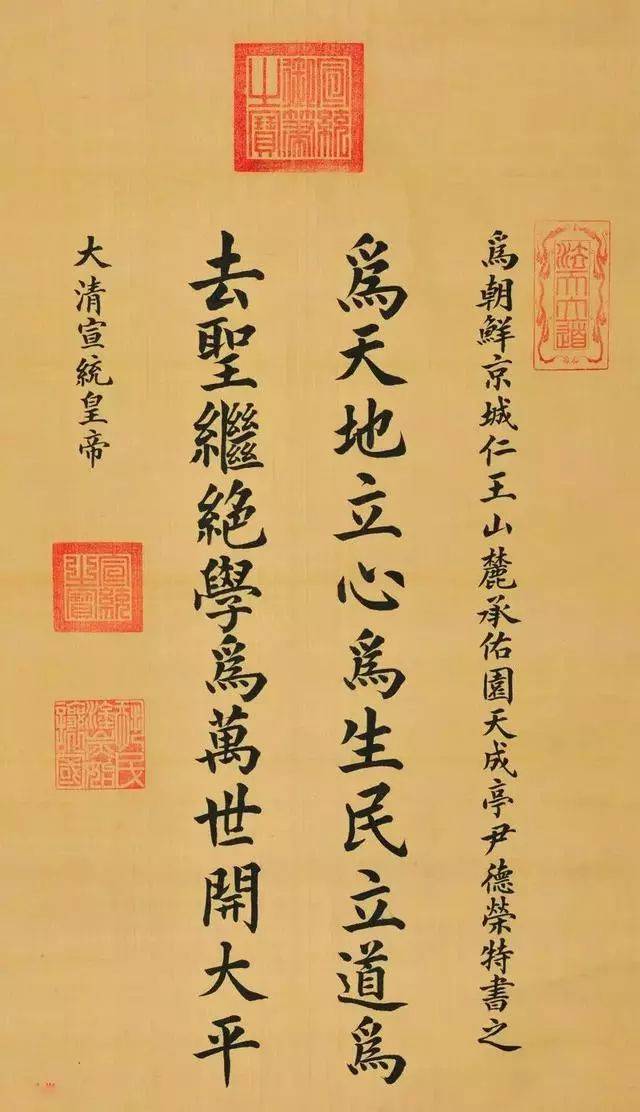 宣統御筆之寶
法天立道
為朝鮮京城仁王山麓承佑園天成亭尹德榮特書之
為天地立心為生民立道為
去聖繼絕學為萬世開大平
大清宣統皇帝
宣統之寶